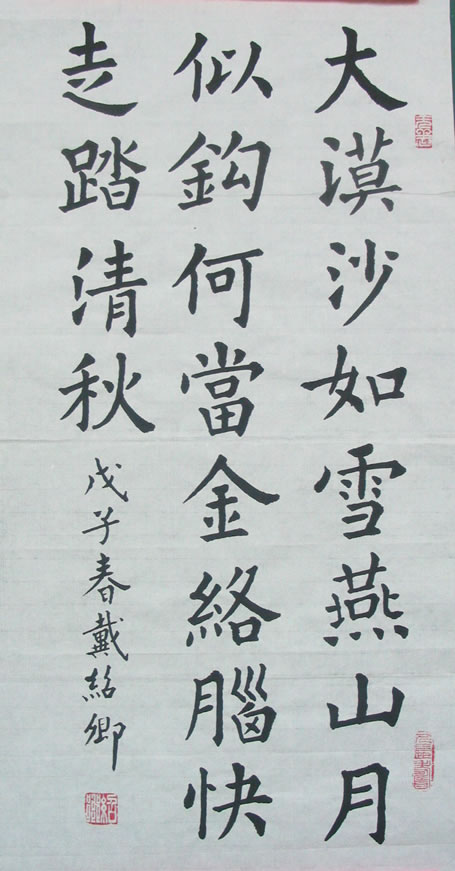 大漠沙如雪燕山月
似鈎何當金絡腦快
走踏清秋
戊子春戴紹卿